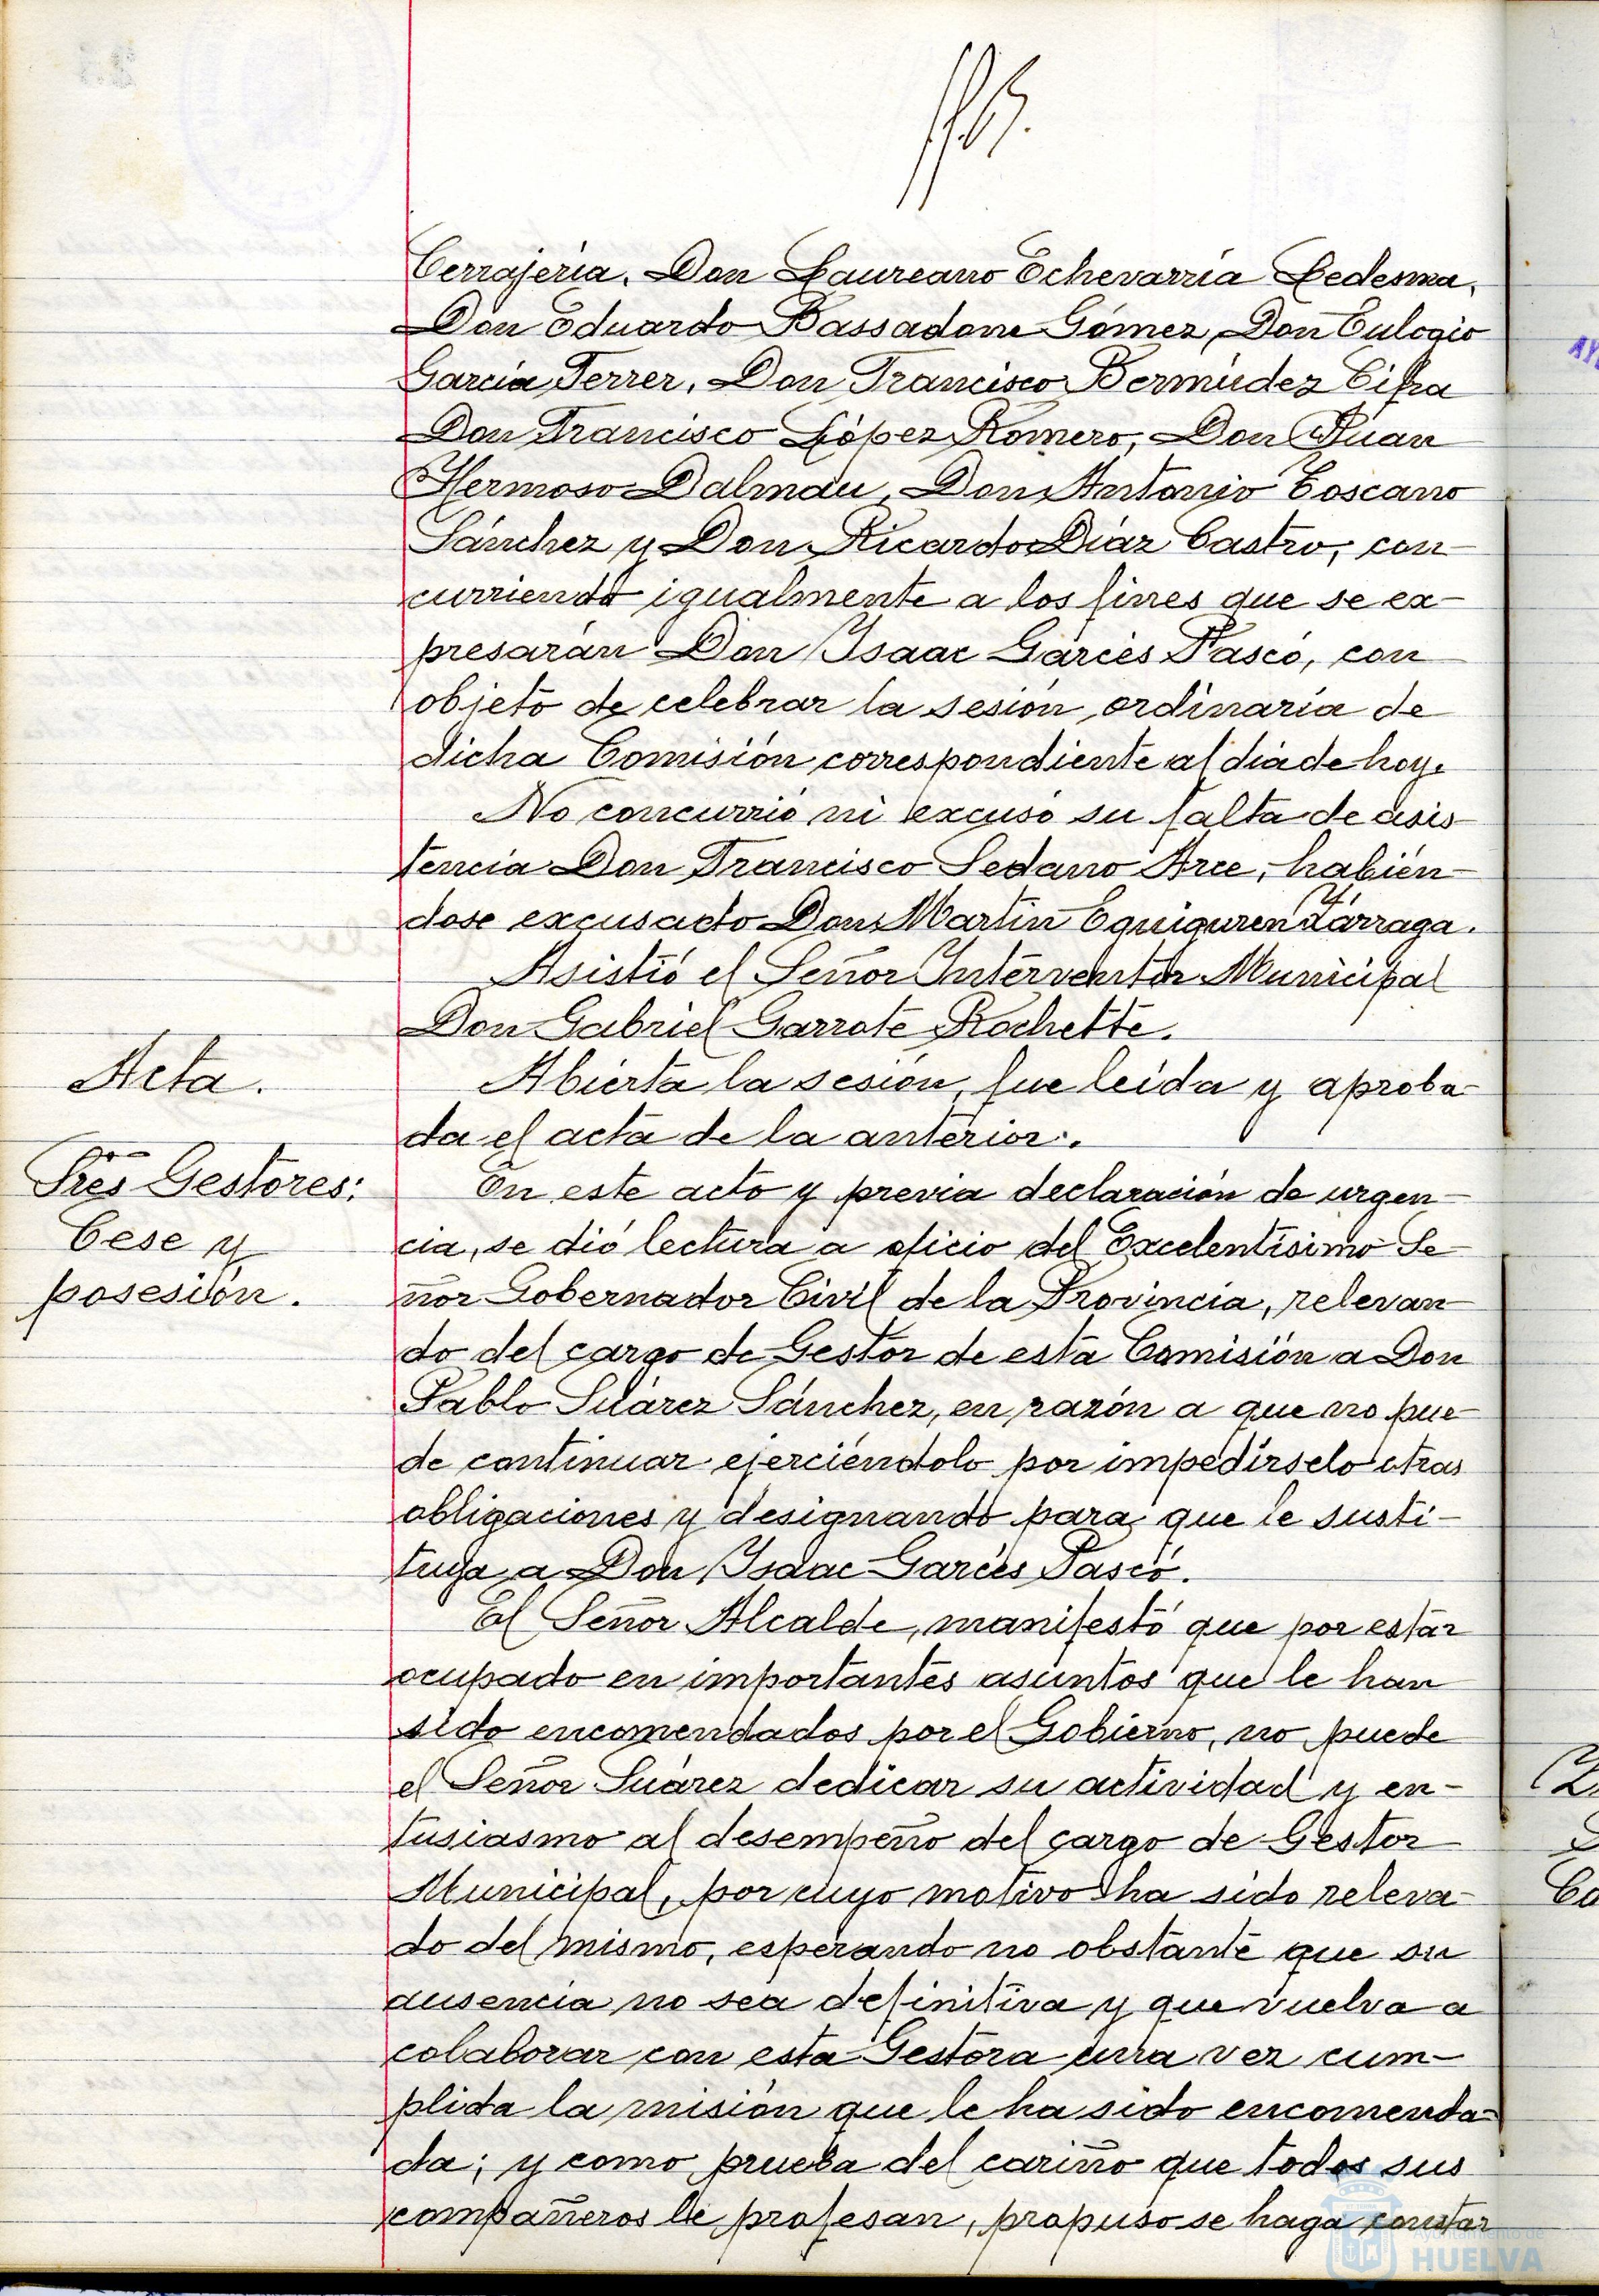 Cerrajería, Don Laureano Echevarría Ledesma,
Don Eduardo Bassadone Gómez, Don Eulogio
García Ferrer, Don Francisco Bermúdez Cifra
Don Francisco López Romero, Don Juan
Hermoso Dalmau, Don Antonio Toscano
Sánchez y Don Ricardo Díaz Castro, con-
curriendo igualmente a los fines que se ex-
presarán Don Isaac Garcés Pascó, con
objeto de celebrar la sesión ordinaria de
dicha Comisión correspondiente al día de hoy.
No concurrió ni excusó su falta de asis-
tencia Don Francisco Sedano Arce, habién-
dose excusado Don Martín Eguiguren Y. Zárraga.
Asistió el Señor Interventor Municipal
Don Gabriel Garrote Rochette.
Acta.
Abierta la sesión, fue leída y aproba-
da el acta de la anterior.
Sres Gestores:
Cese y
posesión.
En este acto y previa declaración de urgen-
cia, se dió lectura a oficio del Excelentísimo Se-
ñor Gobernador Civil de la Provincia, relevan-
do del cargo de Gestor de esta Comisión a Don
Pablo Suárez Sánchez, en razón a que no pue-
de continuar ejerciéndolo por impedírselo otras
obligaciones y designando para que le susti-
tuya a Don Isaac Garcés Pascó.
El Señor Alcalde, manifestó que por estar
ocupado en importantes asuntos que le han
sido encomendados por el Gobierno, no puede
el Señor Suárez dedicar su actividad y en-
tusiasmo al desempeño del cargo de Gestor
Municipal, por cuyo motivo ha sido releva-
do del mismo, esperando no obstante que su
ausencia no sea definitiva y que vuelva a
colaborar con esta Gestora una vez cum-
plida la misión que le ha sido encomenda-
da; y como prueba del cariño que todos sus
compañeros le profesan, propuso se haga constar
Ayuntamiento de
HUELVA